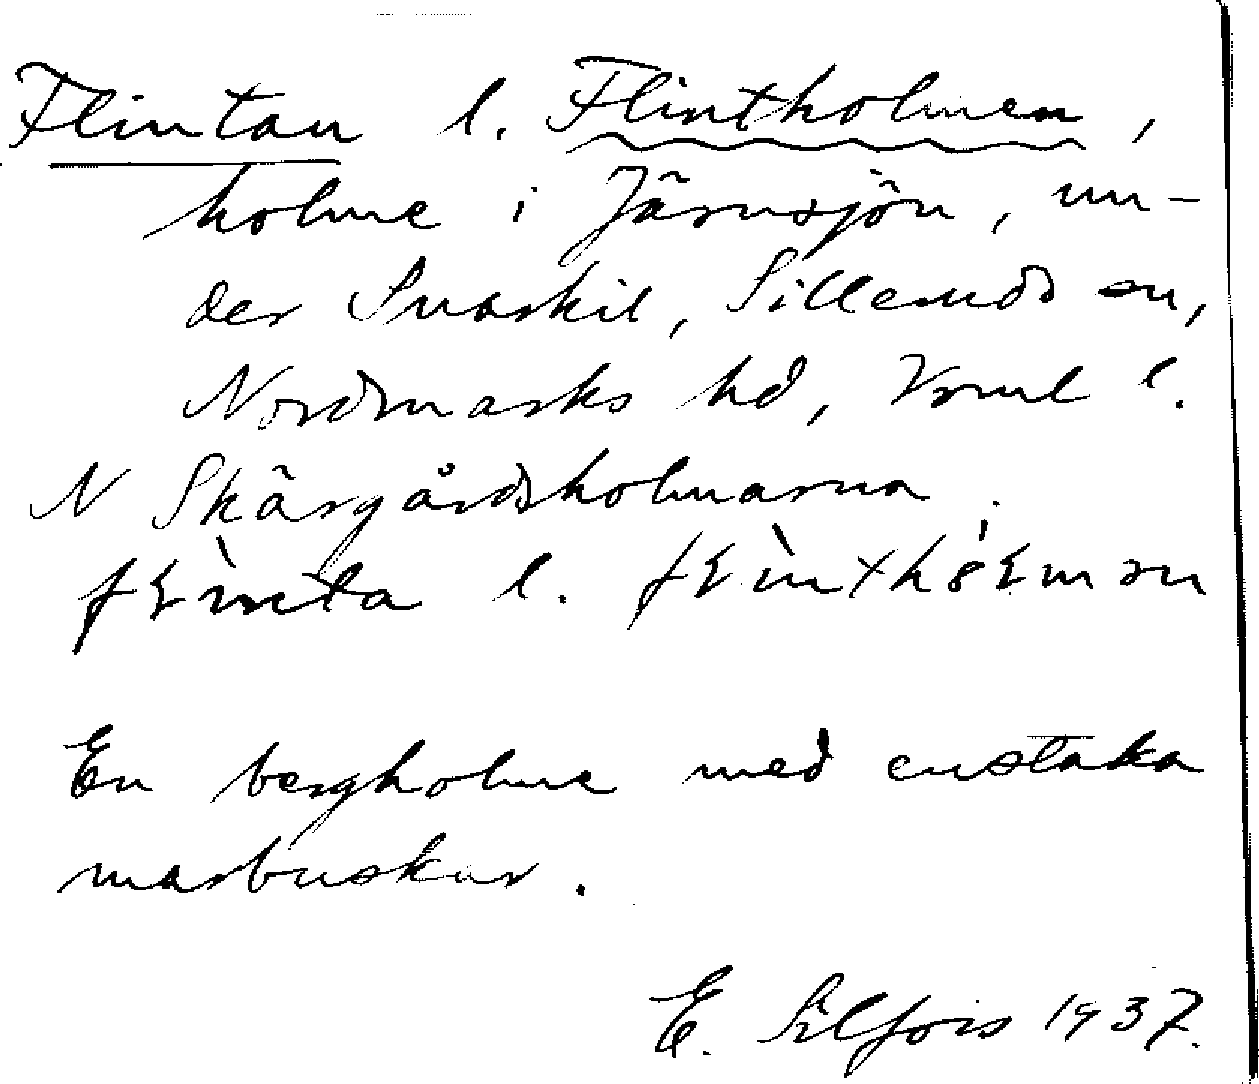 Flintan l. Flintholmen,
holme i Järnsjön, un-
der Snarkil, Silleruds sn,
Nordmarks hd, Vrml l.
N Skärgårdsholmarna.
En bergholme med enstaka
marbuskar.
E. 1937.